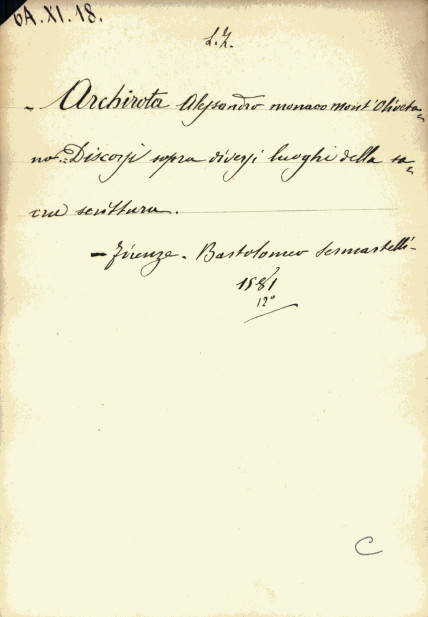 6A.XI.18.
L.Z.
- Archirota Alessandro monaco mont'Oliveta=
no.= Discorsi sopra diversi luoghi della sa=
cra scrittura.
- Firenze. Bartolomeo Sermartelli-
1581
12°
C